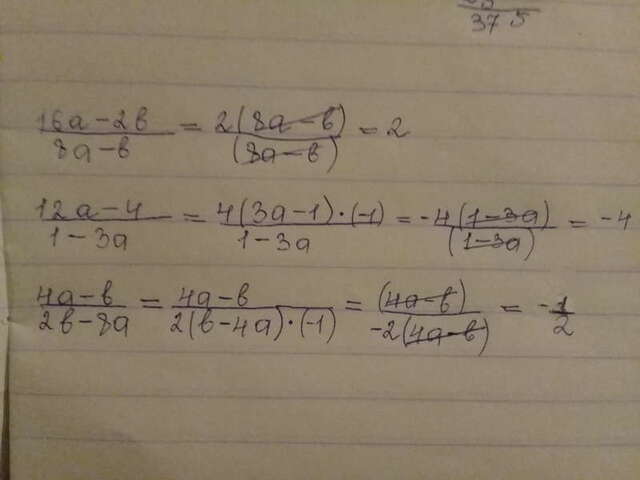 375
16a-2b/8a-b = 2(8a-b)/(8a-b) = 2
12a-4/1-3a = 4(3a-1)·(-1)/1-3a = -4(1-3a)/(1-3a) = -4
4a-b/2b-8a = 4a-b/2(b-4a)·(-1) = (4a-b)/-2(4a-b) = -1/2